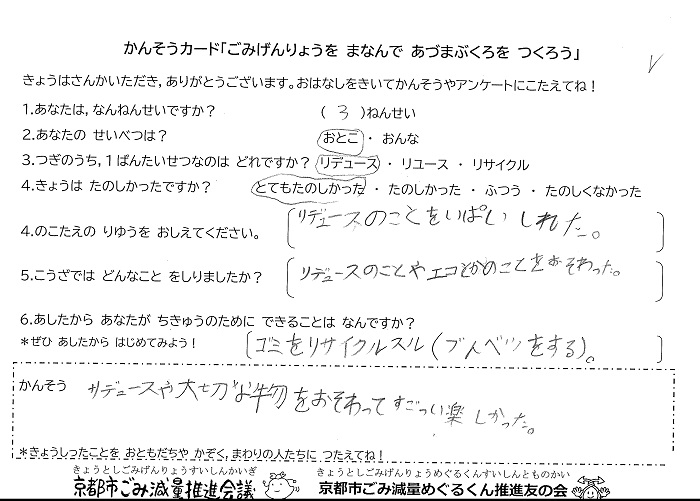 かんそうカード「ごみげんりょうを まなんで あづまぶくろを つくろう」
きょうはさんかいただき、ありがとうございます。おはなしをきいてかんそうやアンケートにこたえてね！
1.あなたは、なんねんせいですか？ （ 3 ）ねんせい
2.あなたの せいべつは？ おとこ ・ おんな
3.つぎのうち、１ばんたいせつなのは どれですか？ リデュース ・ リユース ・ リサイクル
4.きょうは たのしかったですか？ とてもたのしかった ・ たのしかった ・ ふつう ・ たのしくなかった
4.のこたえの りゆうを おしえてください。 リデュースのことをいぱい しれた。
5.こうざでは どんなこと をしりましたか？ リデュースのことやエコとかのことをおそわった。
6.あしたから あなたが ちきゅうのために できることは なんですか？
*ぜひ あしたから はじめてみよう！ ゴミをリサイクルスル(ブンベツをする)。
かんそう リデュースや大切な物をおそわってすごっい楽しかった。
*きょうしったことを おともだちや かぞく、まわりの人たちに つたえてね！
きょうとしごみげんりょうすいしんかいぎ きょうとしごみげんりょうめぐるくんすいしんとものかい
京都市ごみ減量推進会議 京都市ごみ減量めぐるくん推進友の会